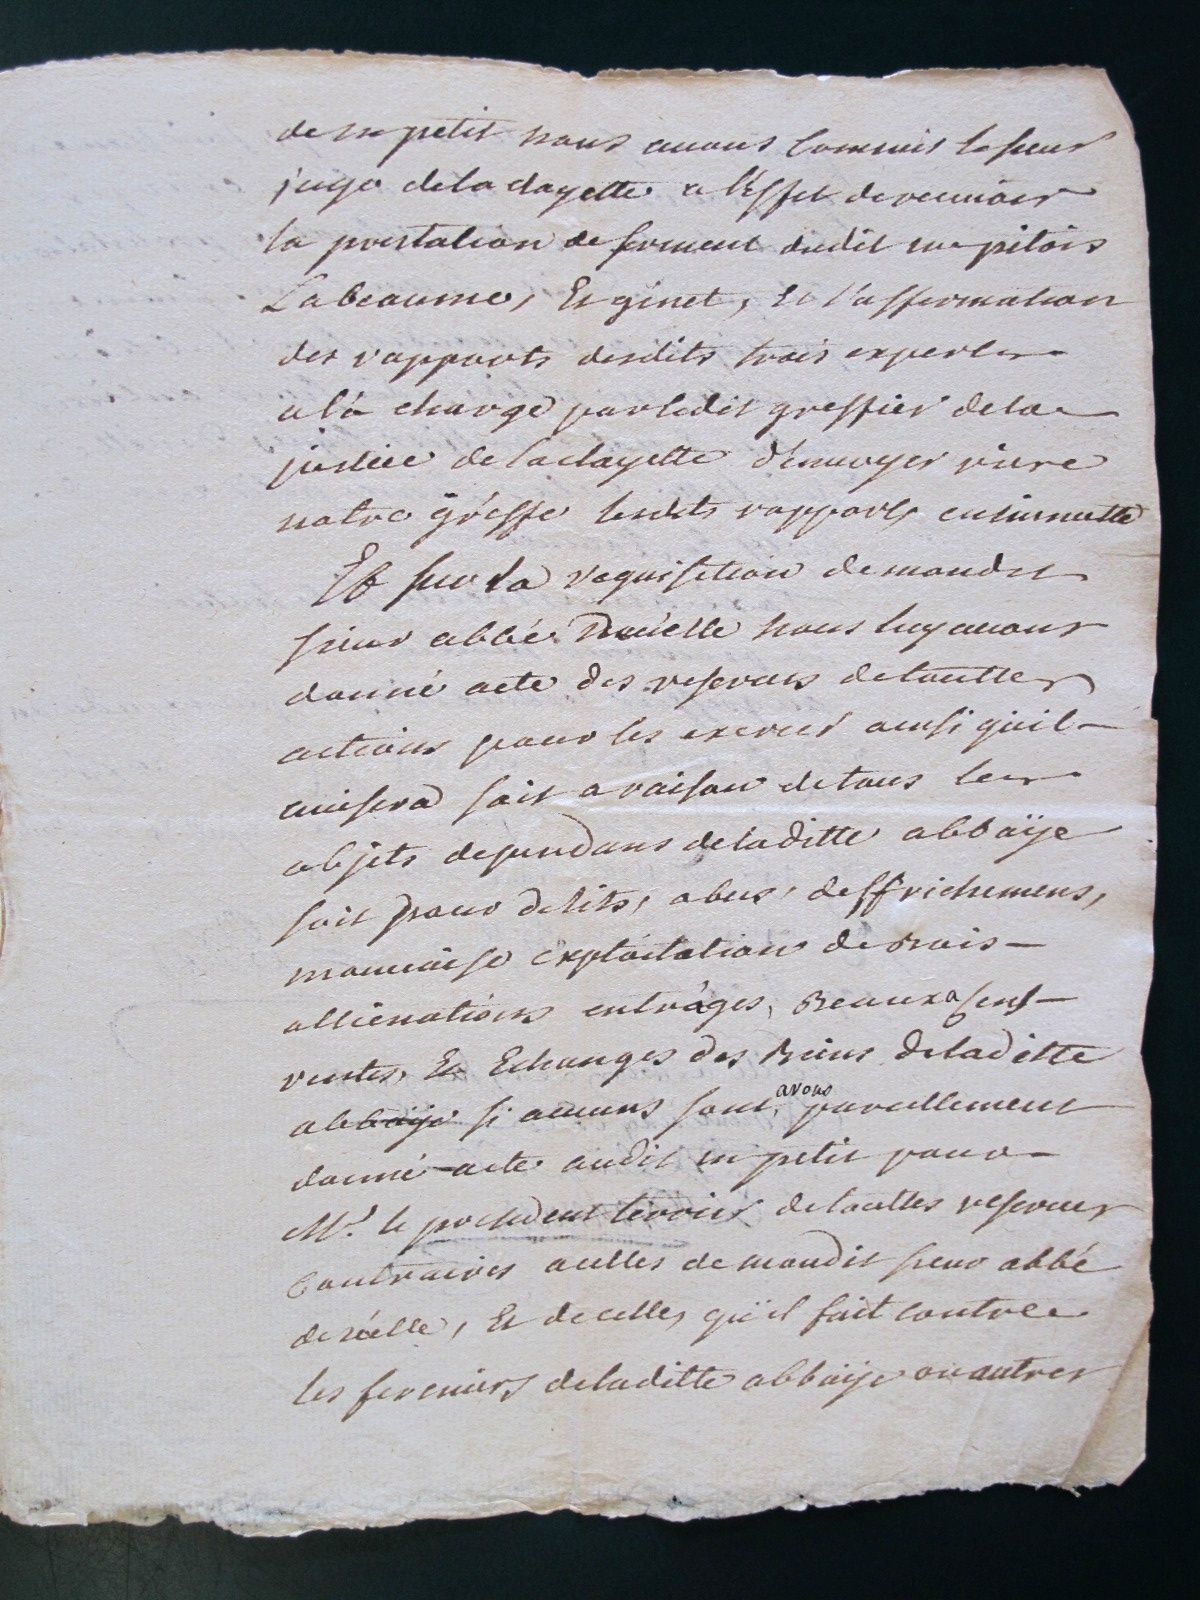 de me petit nous avons commis le sieur
juge de la clayette a l'Effet de recevoir
la prestation de serment dudit me pitois
Labeaume, Et ginet, Et l'affirmation
des rapports desdits trois experts
a la charge par ledit greffier de la
justice de la clayette d'envoyer riere
notre greffe lesdits rapports en minutte
Et sur la requisition de mondit
sieur abbé nous luy avons
donné acte des reserves de touttes
actions pour les exercer ainsi quil
avisera soit a raison de tous les
objets dependans de laditte abbaÿe
soit pour delits, abus, deffrichemens,
mauvaise exploitation de Bois
allienations entrâges, Beaux a Cens
ventes, Et Echanges des Biens de laditte
abbaije si aucuns sont, avons pareillement
donné acte audit me petit pour
Mr. le president terrier de touttes reserves
Contraires a celles de mondit sieur abbé
de, Et de celles qu'il fait contre
les fermiers de laditte abbaije ou autres